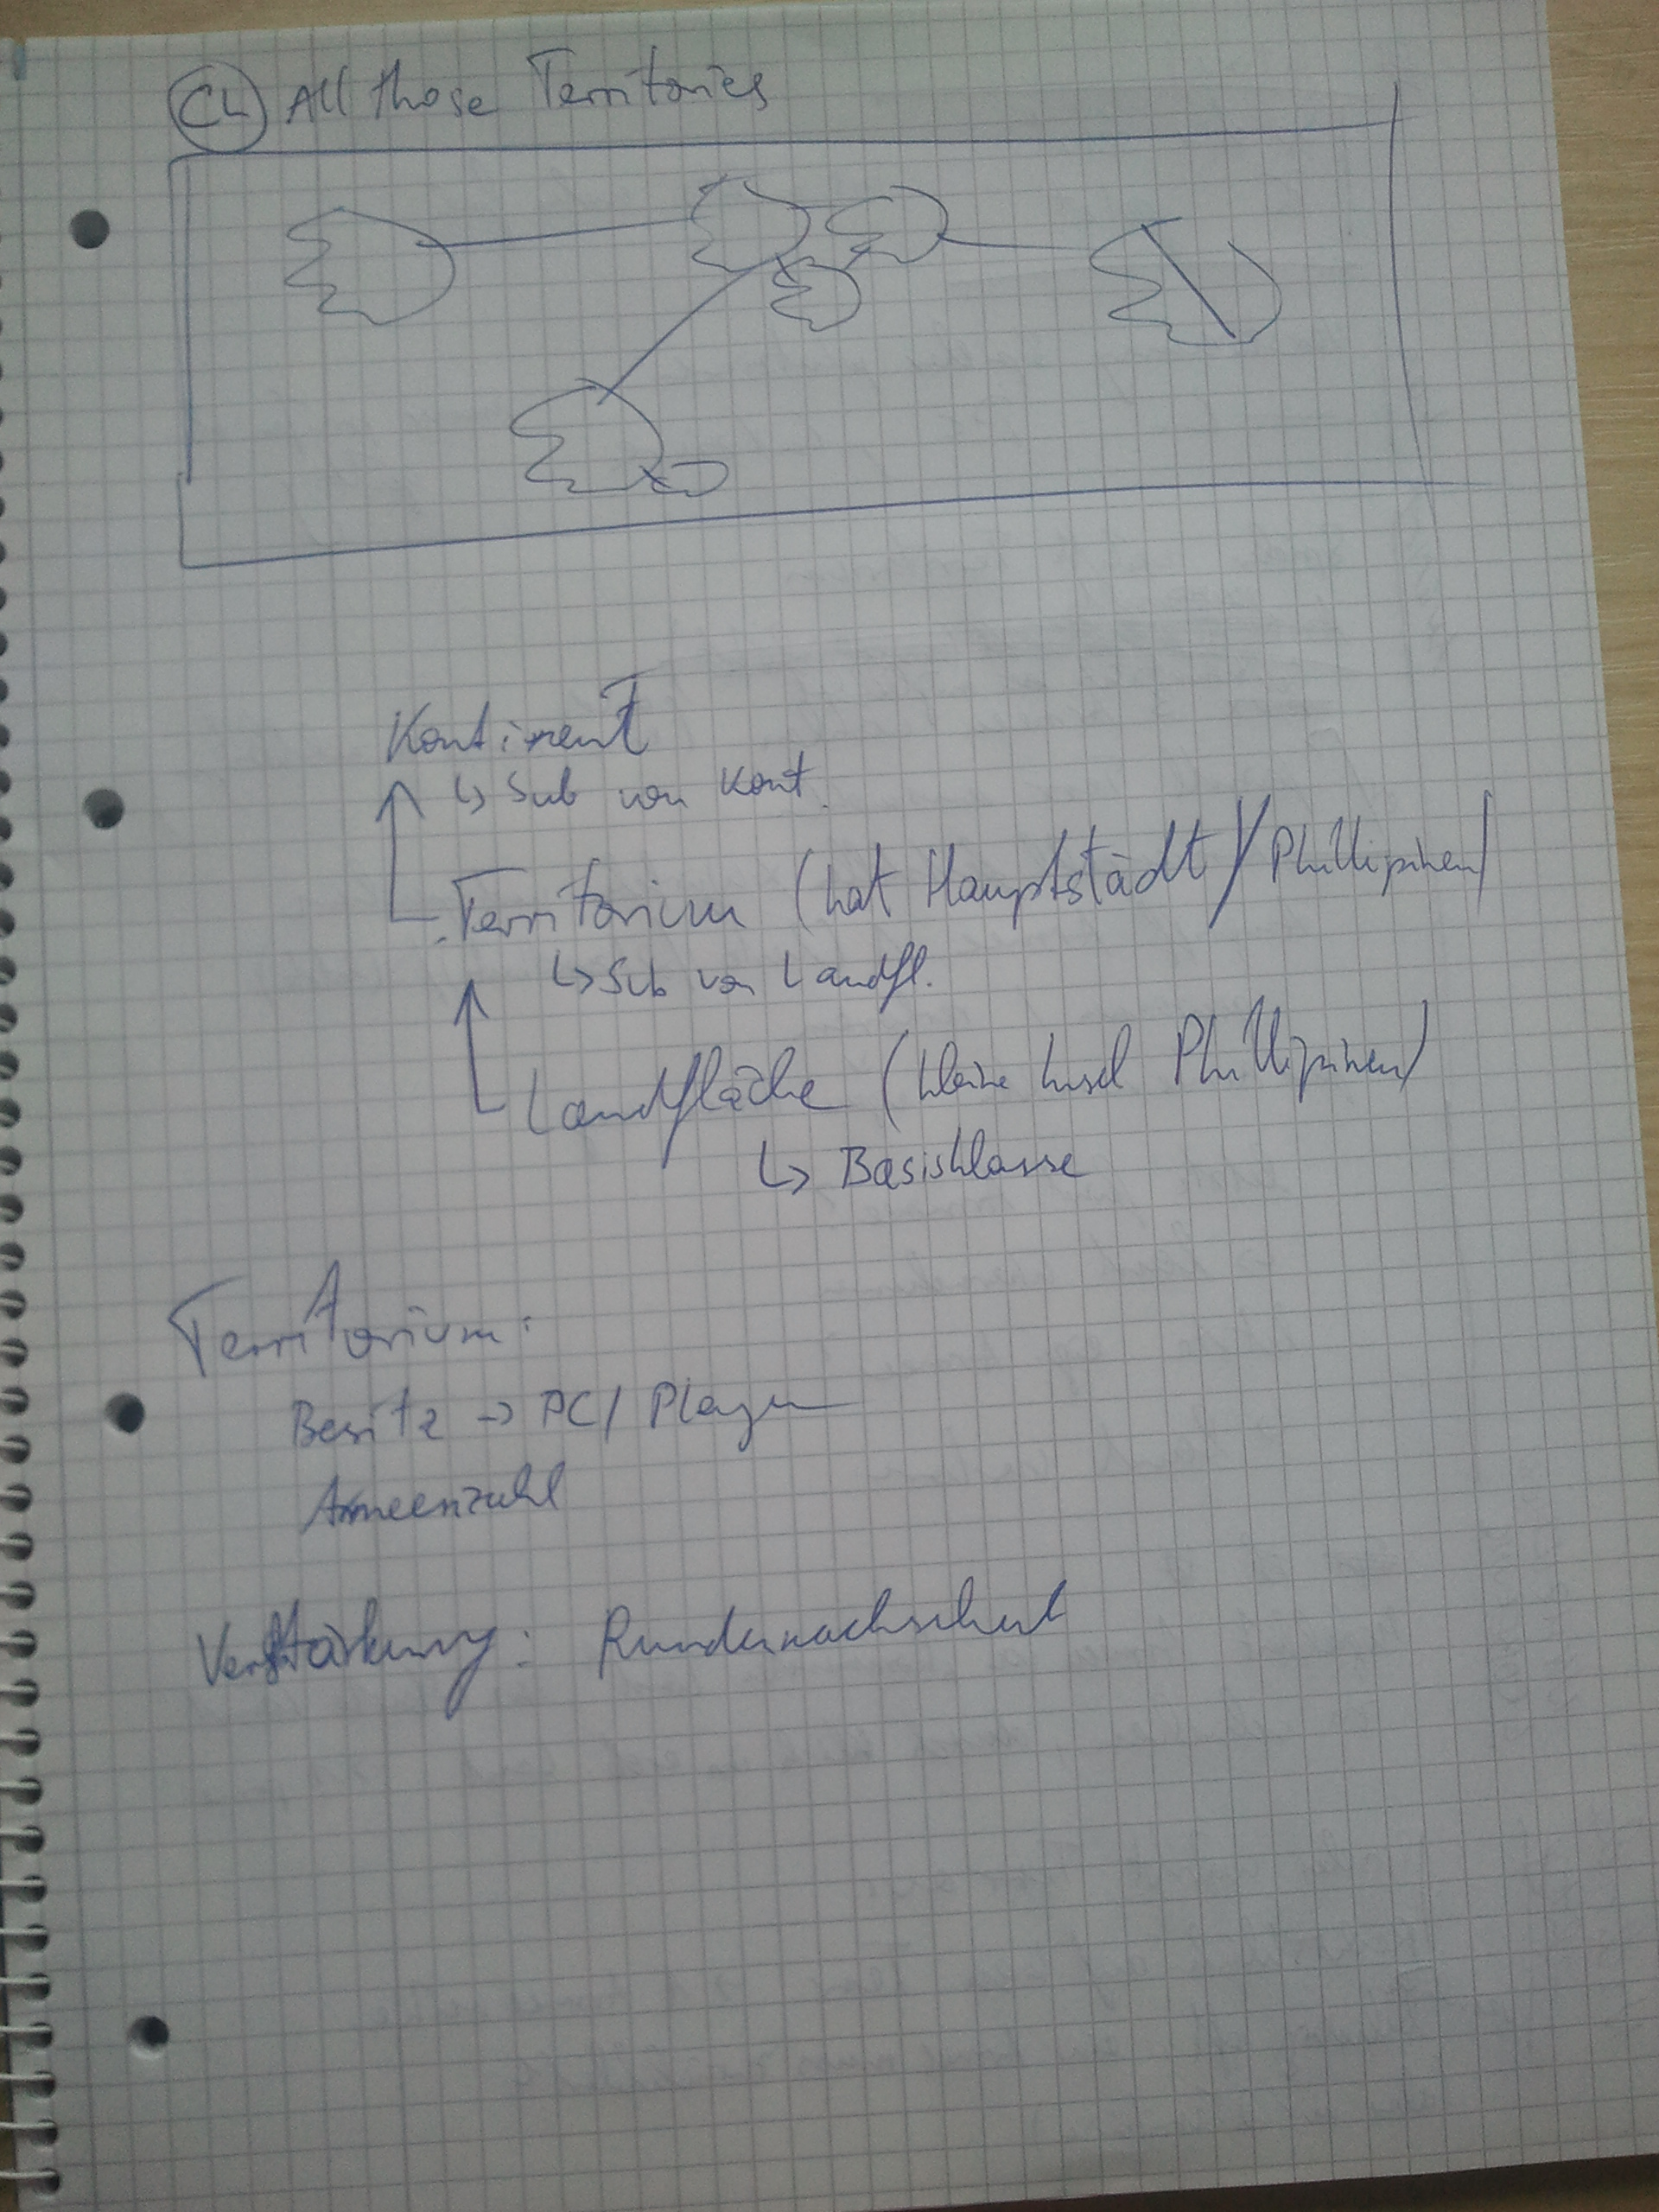 CL All those Territories
Kontinent
↳ Sub von Kont.
Territorium (hat Hauptstädt / Phillipinen)
↳ Sub von Landfl.
Landfläche (kleine Insel Phillipinen)
↳ Basisklasse
Territorium:
Besitz → PC / Player
Armeenzahl
Verstärkung: Rundennachschub